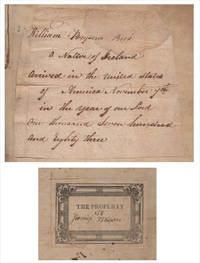 William
a Native of Ireland
arrived in the United States
of America November 7th
in the year of our Lord
One thousand Seven hundred
and Eighty three
THE PROPERTY
OF